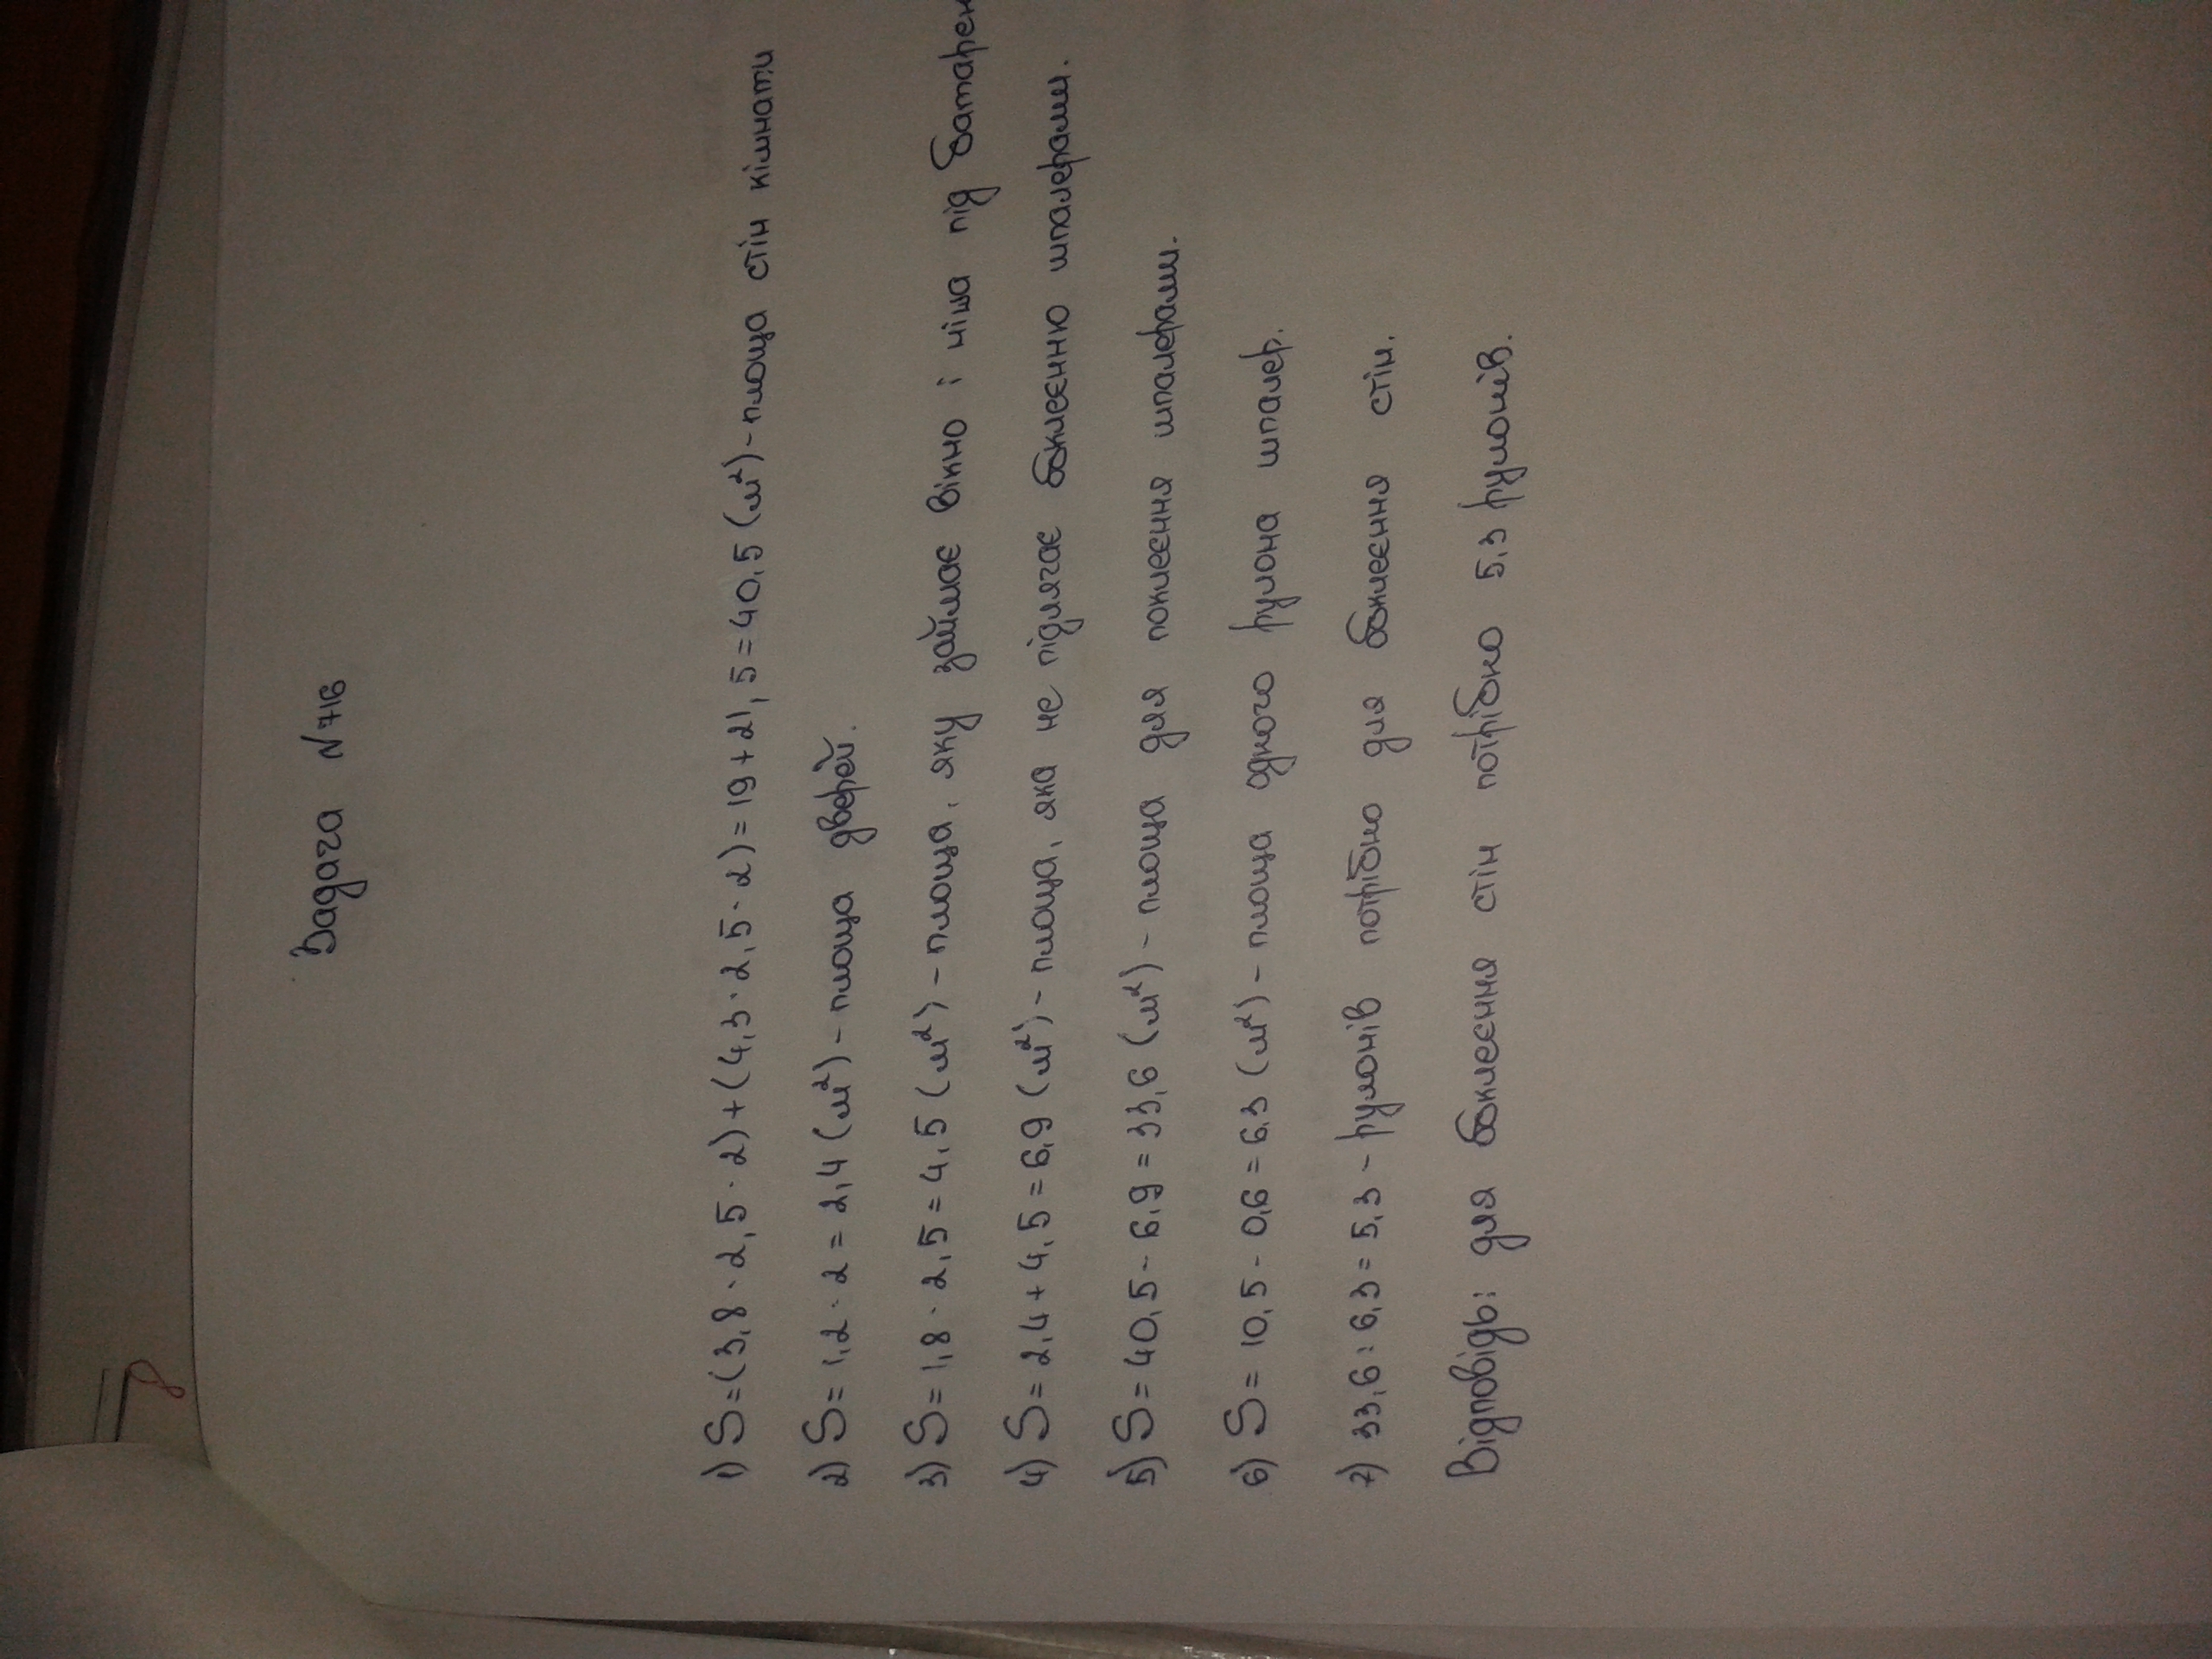 Задача №716
1) S=(3,8·2,5·2)+(4,3·2,5·2)=19+21,5=40,5(м²)-площа стін кімнати
2) S=1,2·2=2,4(м²)-площа дверей.
3) S=1,8·2,5=4,5(м²)-площа, яку займає вікно і ніша під
4) S=2,4+4,5=6,9(м²)-площа, яка не підлягає обклеєнню шпалерами.
5) S=40,5-6,9=33,6(м²)-площа для поклеєння шпалерами.
6) S=10,5-0,6=6,3(м²)-площа одного рулона шпалер.
7) 33,6:6,3=5,3-рулонів потрібно для обклеєння стін.
Відповідь: для обклеєння стін потрібно 5,3 рулонів.
8